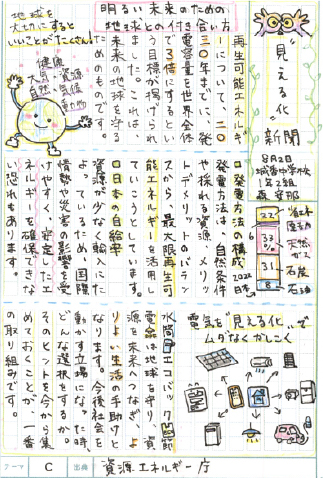 "見える化"新聞
8月2日
1年2組
明るい未来のための
地球との付き合い方
再生可能エネルギ
ーについて、二〇
三〇年までに、発
電容量を世界全体
で3倍にするとい
う目標が掲げられ
ました。これは、
未来の地球を守る
ためのものです。
地球を
大切にすると
いいことがたくさん!
健康
大気 資源
自然 気候
動物
□発電方法の構成
発電方法は、自然条件
や採れる資源、メリッ
トデメリットのバラン
スから、最大限再生可
能エネルギーを活用し
ていこうとています。
□日本の自給率
資源が少なく輸入にた
よっているため、国際
情勢や災害の影響を受
けやすく、安定したエ
ネルギーを確保できな
い恐れもあります。
2022
日本
22%
33%
31%
8
原子力
天然ガス
石炭
石油
電気を"見える化"で
ムダなくかしこく
水筒エコバック節
電は地球を守り、資
源を未来へつなぎ、よ
りよい生活の手助けと
なります。今後社会を
動かす立場になった時、
どんな選択をするか。
そのヒントを今から集
めておくことが、一番
の取り組みです。
テーマ C 出典 資源エネルギー庁